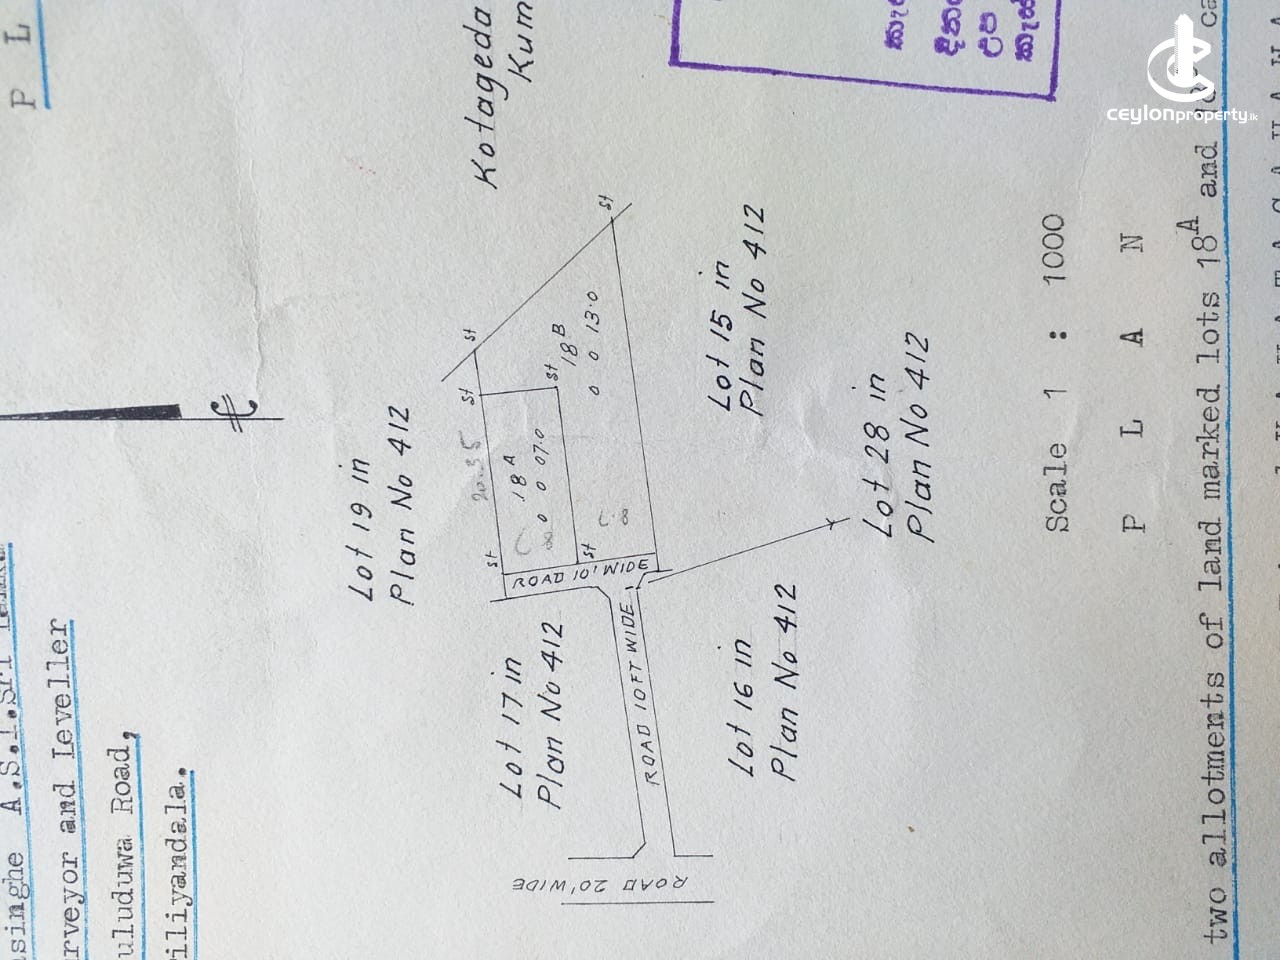 P L
A.S.L.Sri
and Leveller
Road,
Kotageda
Kum
Lot 19 in
Plan No 412
Lot 17 in
Plan No 412
20.35
18A
0 0 07.0
18B
0 0 13.0
st
st
st
st
st
st
ROAD 10' WIDE
ROAD 10FT WIDE
ROAD 20' WIDE
Lot 15 in
Plan No 412
Lot 16 in
Plan No 412
Lot 28 in
Plan No 412
Scale 1 : 1000
P L A N
two allotments of land marked lots 18A and
ceylonproperty.lk